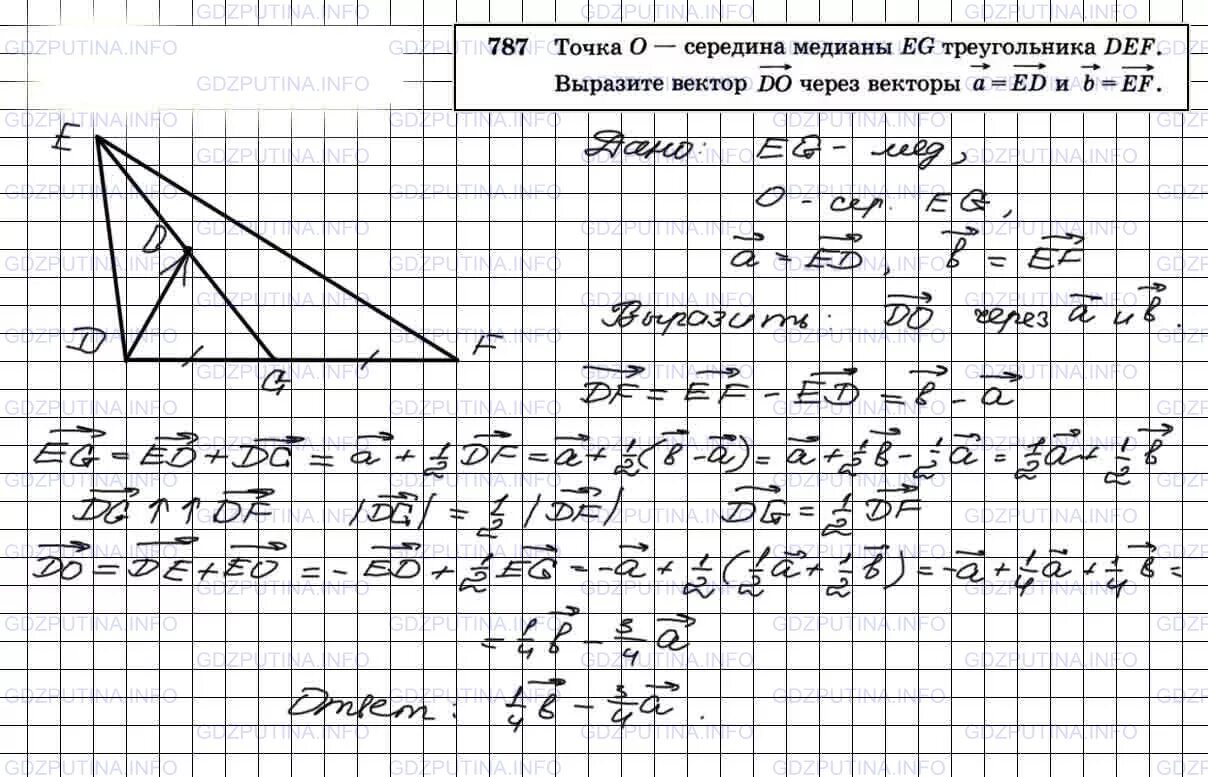 787 Точка O — середина медианы EG треугольника DEF.
Выразите вектор DO через векторы a = ED и b = EF.
E
D
O
G
F
Дано: EG - мед,
O - сер. EG,
a = ED, b = EF
Выразить: DO через a и b.
DF = EF - ED = b - a
EG = ED + DG = a + 1/2 DF = a + 1/2 (b - a) = a + 1/2 b - 1/2 a = 1/2 a + 1/2 b
DG ↑↑ DF |DG| = 1/2 |DF| DG = 1/2 DF
DO = DE + EO = - ED + 1/2 EG = -a + 1/2 (1/2 a + 1/2 b) = -a + 1/4 a + 1/4 b =
= 1/4 b - 3/4 a
Ответ: 1/4 b - 3/4 a.
GDZPUTINA.INFO